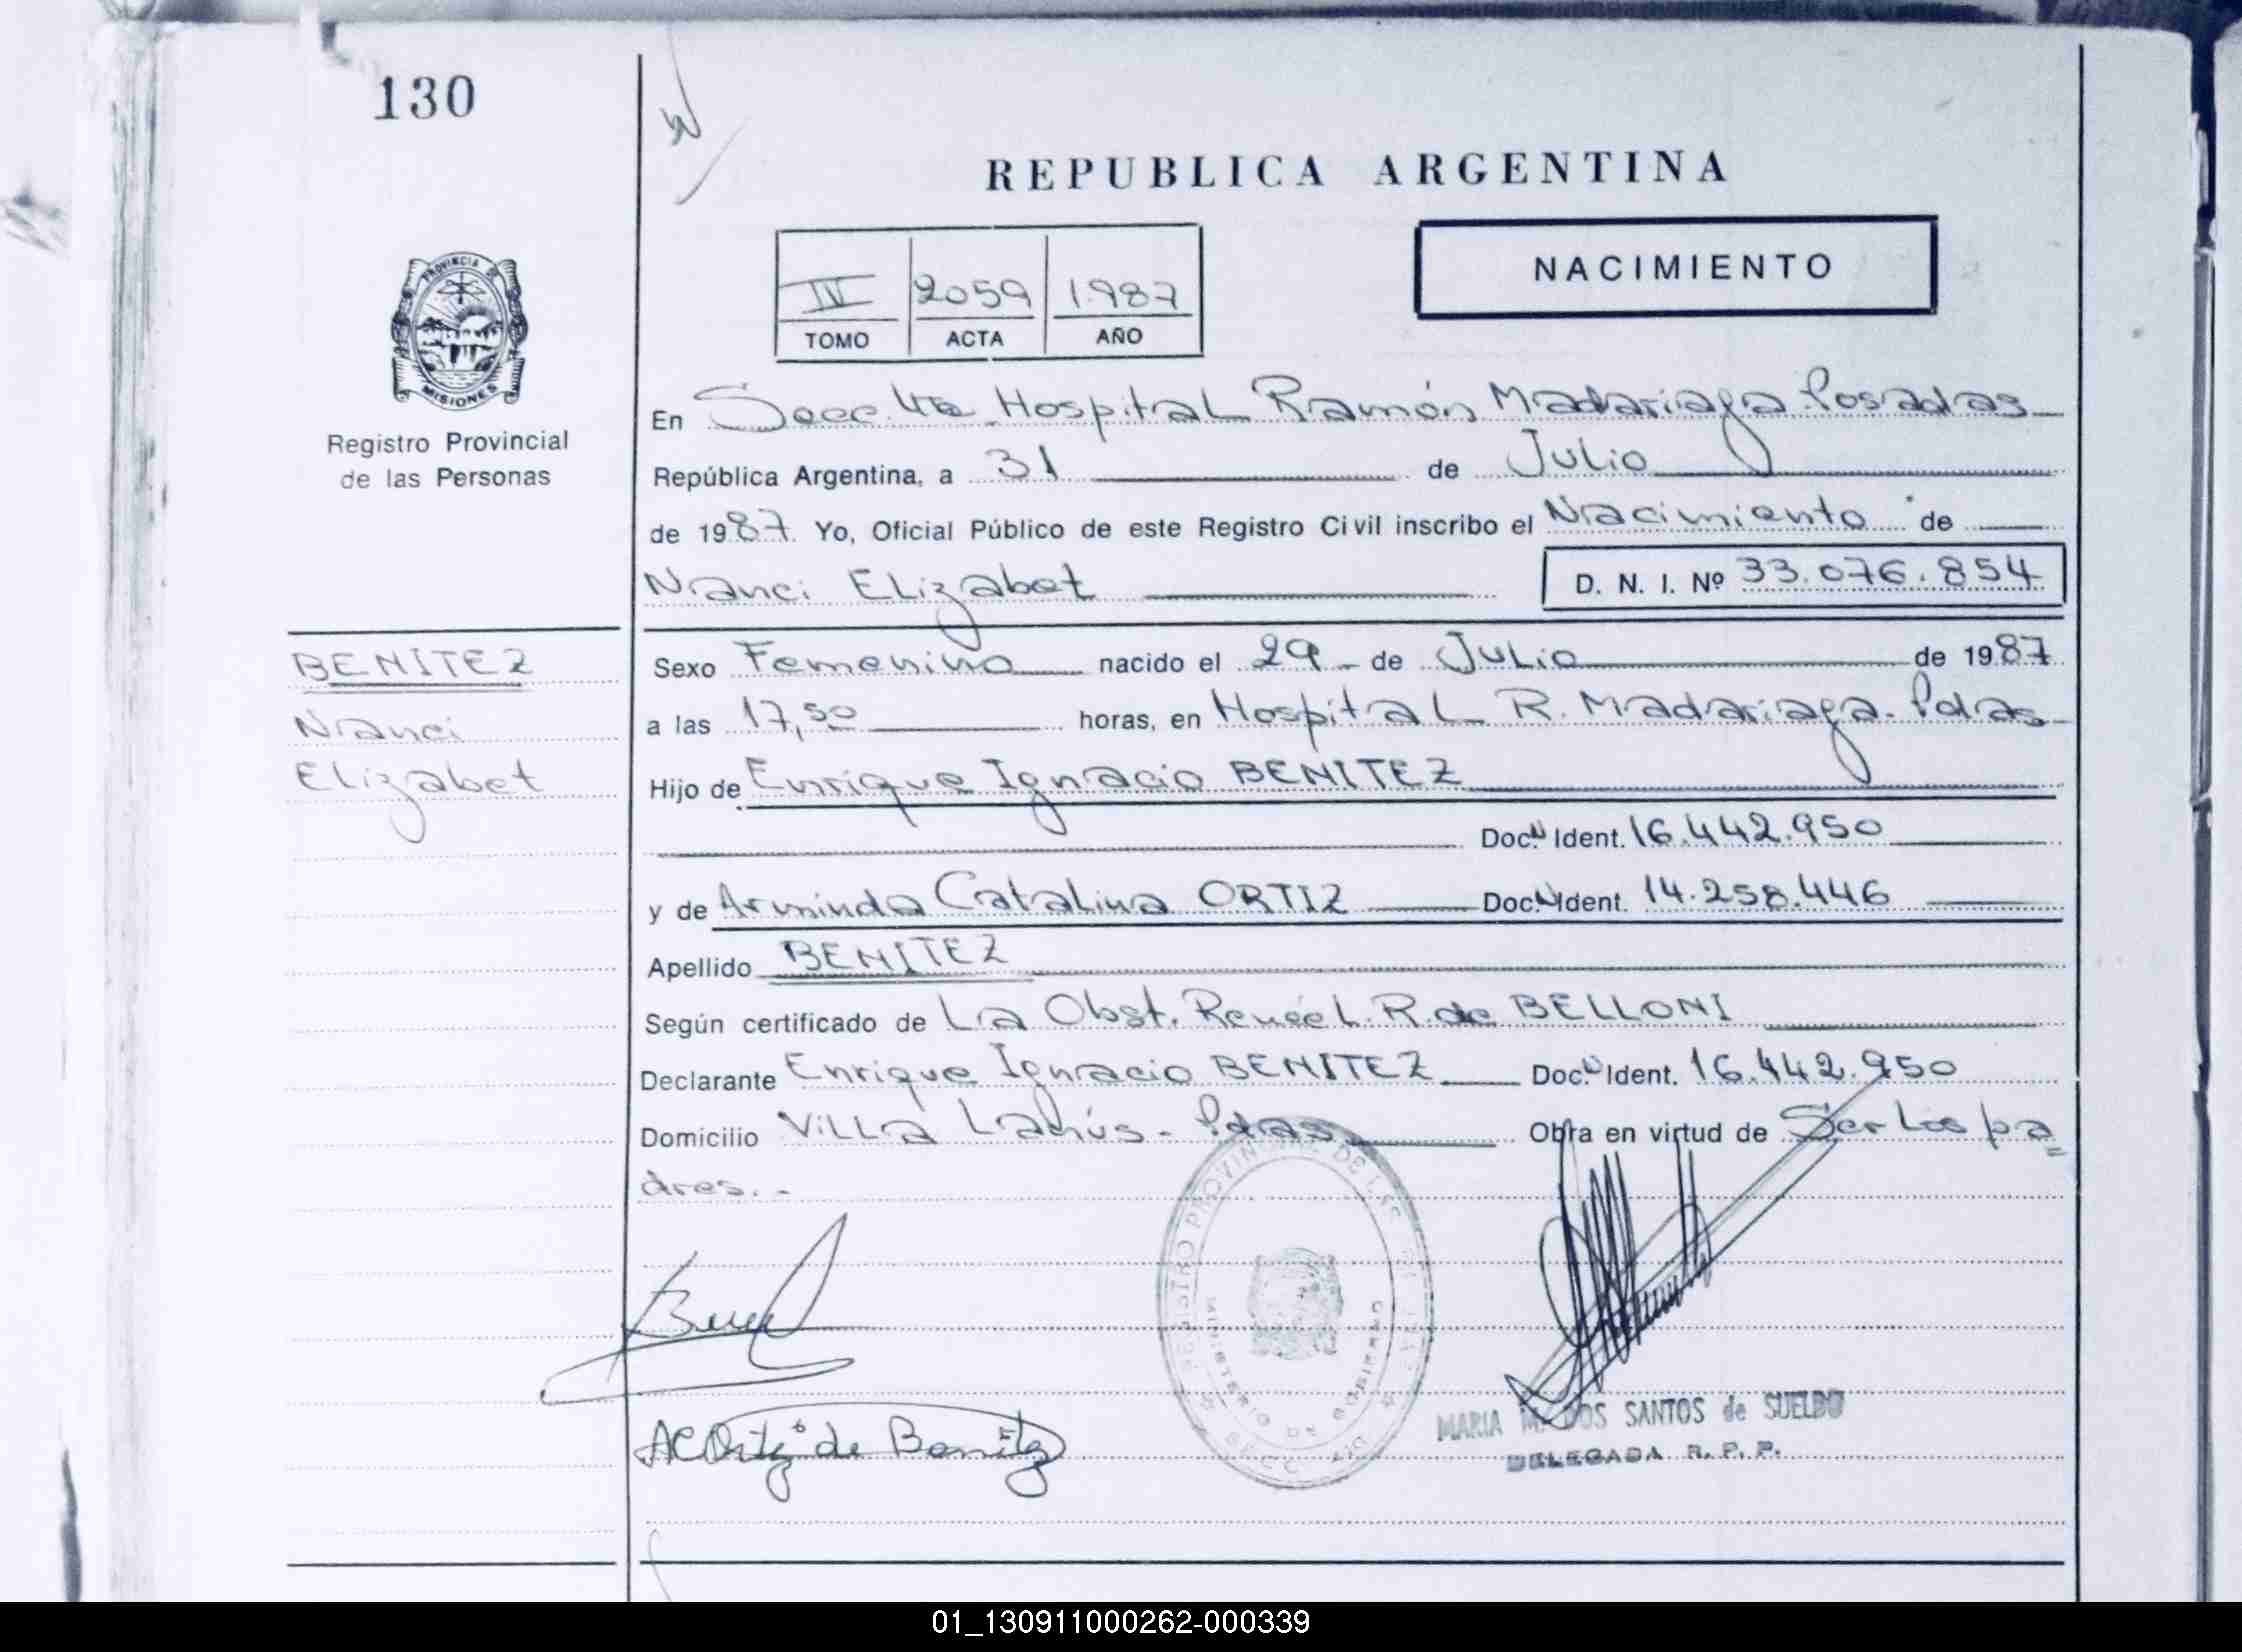 130
REPUBLICA ARGENTINA
NACIMIENTO
IV 2059 1987
TOMO ACTA AÑO
PROVINCIA DE
MISIONES
Registro Provincial
de las Personas
En Secc. 4ta Hospital Ramón Madariaga. Posadas
República Argentina, a 31 de Julio
de 1987. Yo, Oficial Público de este Registro Civil inscribo el Nacimiento de
Nanci Elizabet D. N. I. Nº 33.076.854
BENITEZ
Nanci
Elizabet
Sexo Femenino nacido el 29 de Julio de 1987
a las 17,50 horas, en Hospital R. Madariaga. Pdas
Hijo de Enrique Ignacio BENITEZ
Doc. N Ident. 16.442.950
y de Arminda Catalina ORTIZ Doc. N Ident. 14.258.446
Apellido BENITEZ
Según certificado de La Obst. Renée L. R. de BELLONI
Declarante Enrique Ignacio BENITEZ Doc. N Ident. 16.442.950
Domicilio Villa Lanús - Pdas Obra en virtud de Ser los pa=
dres. -
REGISTRO PROVINCIAL DE LAS PERSONAS
MINISTERIO DE GOBIERNO
MARIA M. DOS SANTOS de SUELDO
DELEGADA R. P. P.
AC Ortiz de Benitez
01_130911000262-000339